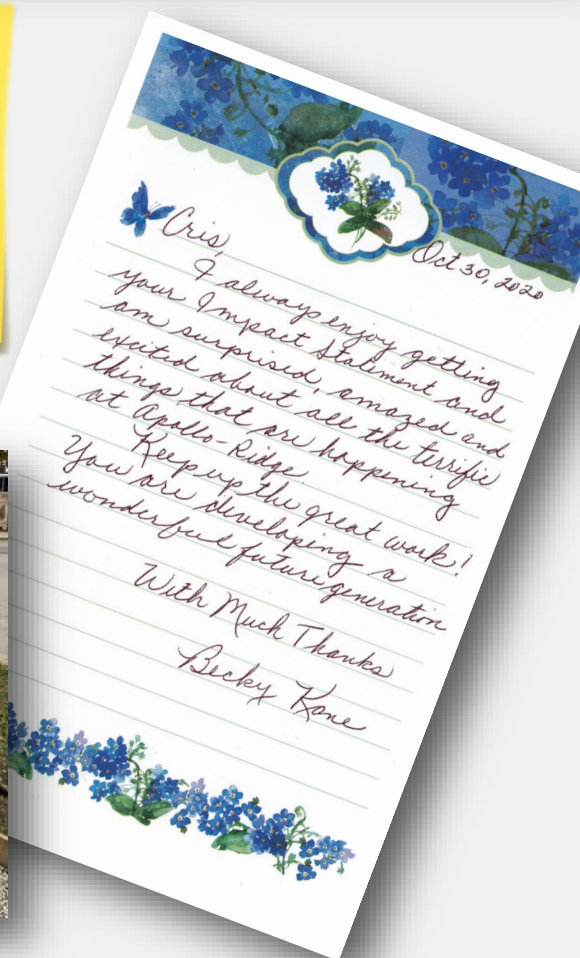 Oct 30, 2020
Cris,
I always enjoy getting
your Impact Statement and
am surprised, amazed and
excited about all the terrific
things that are happening
at Apollo-Ridge.
Keep up the great work!
You are developing a
wonderful future generation
With Much Thanks
Becky Kane